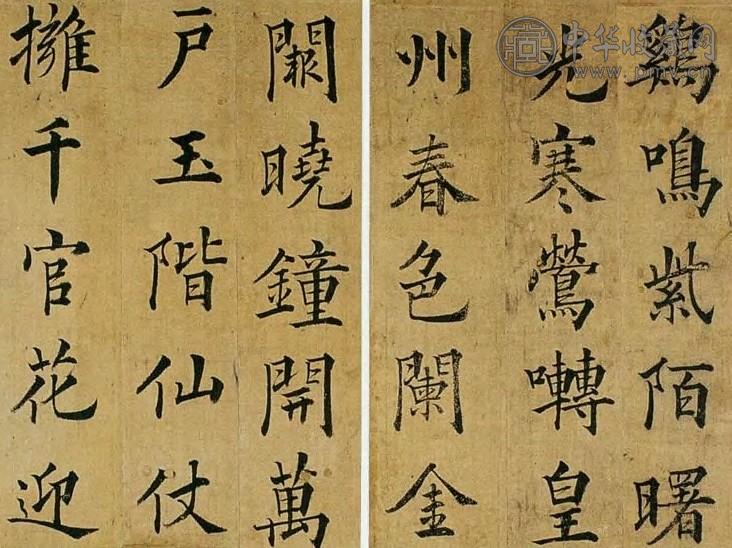 鷄鳴紫陌曙
光寒鶯囀皇
州春色闌金
闕曉鐘開萬
户玉階仙仗
擁千官花迎
中华收藏网
www.pmv.cn